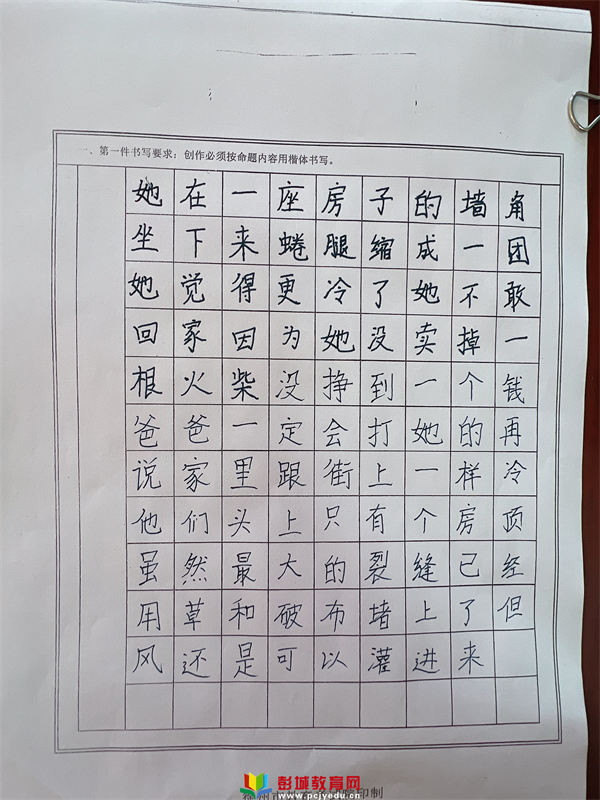 一、第一件书写要求：创作必须按命题内容用楷体书写。
她在一座房子的墙角
坐下来蜷腿缩成一团
她觉得更冷了她不敢
回家因为她没卖掉一
根火柴没挣到一个钱
爸爸一定会打她的再
说家里跟街上一样冷
他们头上只有个房顶
虽然最大的裂缝已经
用草和破布堵上了但
风还是可以灌进来
彭城教育网
www.pcjyedu.cn
印制